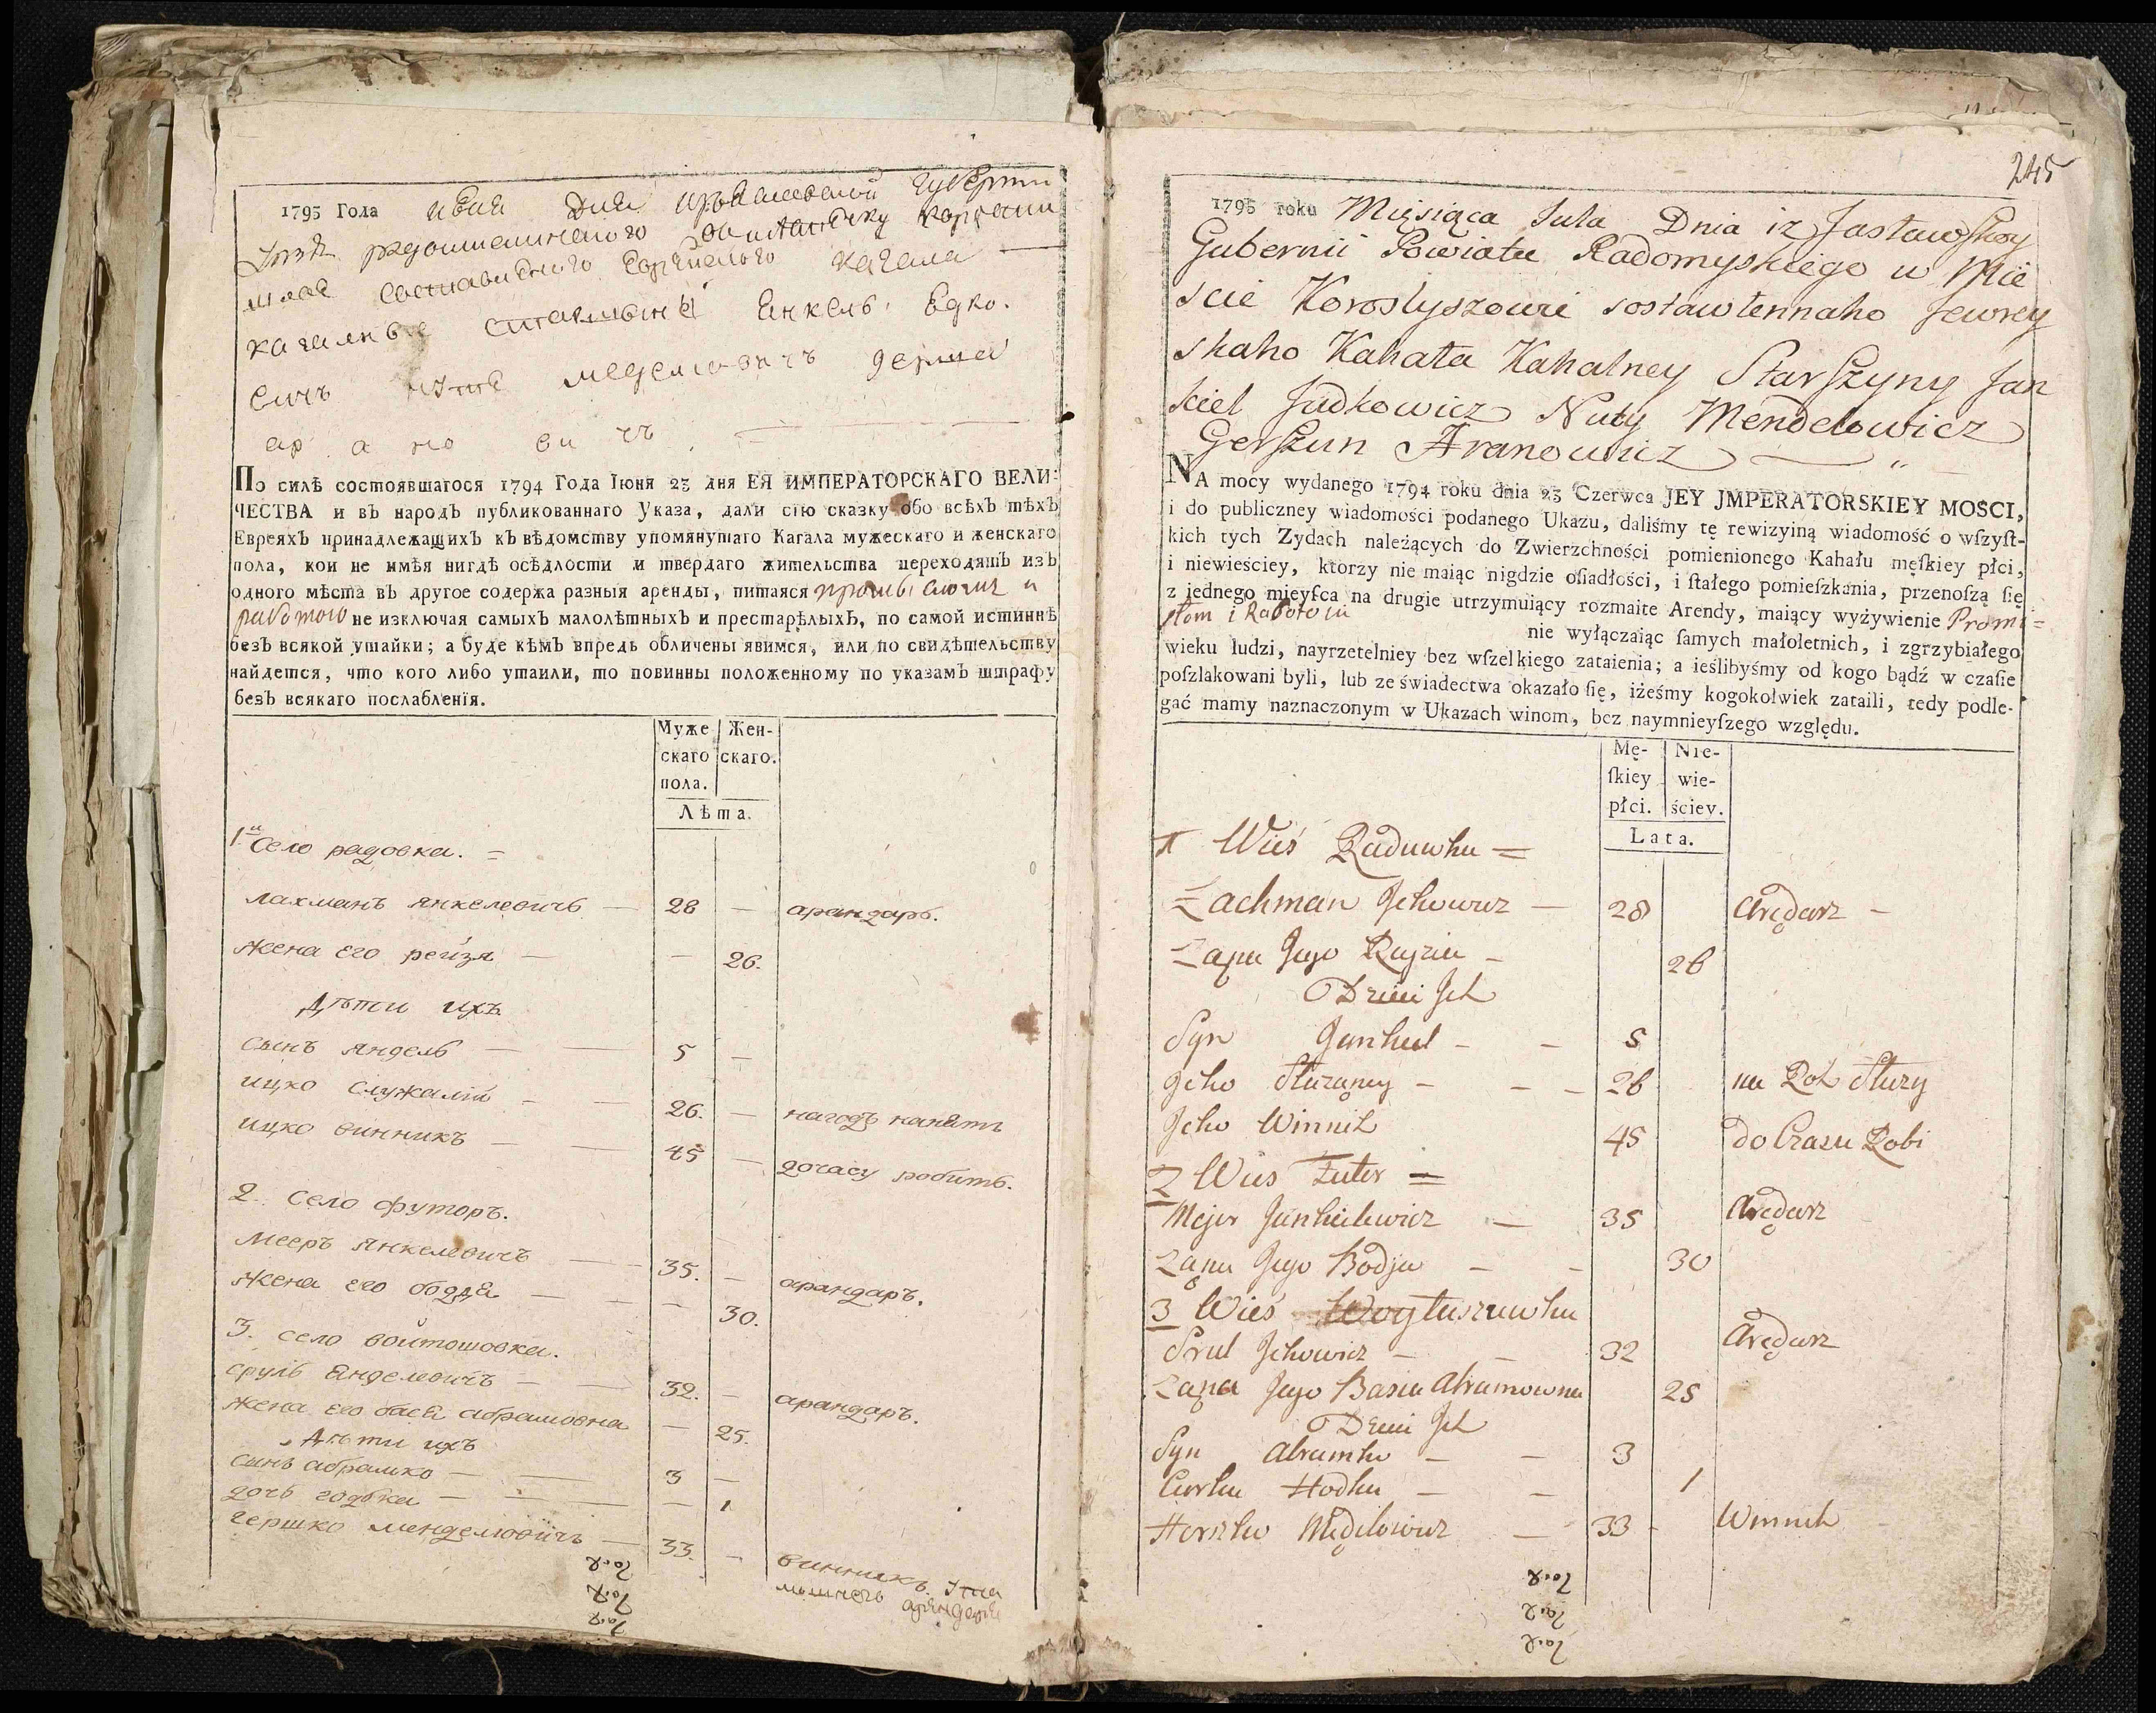 1795 Года
кагалныe
Янкель Едко.
ар а но ви чъ
По силѣ состоявшагося 1794 Года Іюня 23 дня ЕЯ ИМПЕРАТОРСКАГО ВЕЛИ-
ЧЕСТВА и въ народъ публикованнаго Указа, дали сію сказку обо всѣхъ тѣхъ
Евреяхъ принадлежащихъ къ вѣдомству упомянутаго Кагала мужескаго и женскаго
пола, кои не имѣя нигдѣ осѣдлости и твердаго жительства переходятъ изъ
одного мѣста въ другое содержа разныя аренды, питаяся промысломъ и
работою не изключая самыхъ малолѣтныхъ и престарѣлыхъ, по самой истиннѣ
безъ всякой утайки; а буде кѣмъ впредь обличены явимся, или по свидѣтельству
найдется, что кого либо утаили, то повинны положенному по указамъ штрафу
безъ всякаго послабленія.
Муже Жен-
скаго скаго.
пола.
Лѣта.
1 село радовка.
лахманъ янкелевичъ 28 — арандаръ.
жена его рейзя — 26.
дѣти ихъ
сынъ яндель 5 —
ицко служалій 26. —
ицко винникъ 45 — дочасу робитъ.
2. село футоръ.
мееръ янкелевичъ 35. — арандаръ.
жена его бодя — 30.
3. село войтошовка.
сруль янделевичъ 32. — арандаръ.
жена его бася абрамовна — 25.
дѣти ихъ
сынъ абрамко 3 —
дочь годька — 1
гершко менделювичъ 33. — винникъ.
245
1795 roku Miesiąca Jula Dnia 12 Jastawskoy
Gubernii Powiatu Radomyskiego w Mie
scie Korostyszowie sostawlennaho Jewrey
skaho Kahała Kahalney Starszyny Jan
kiel Judkowicz Nuty Mendelowicz
Gerszun Aranowicz
NA mocy wydanego 1794 roku dnia 23 Czerwca JEY JMPERATORSKIEY MOSCI,
i do publiczney wiadomości podanego Ukazu, daliśmy tę rewizyiną wiadomość o wſzyſt-
kich tych Zydach należących do Zwierzchności pomienionego Kahału męſkiey płci,
i niewieściey, ktorzy nie maiąc nigdzie oſiadłości, i ſtałego pomieſzkania, przenoſzą ſię
z jednego mieyſca na drugie utrzymuiący rozmaite Arendy, maiący wyżywienie Promi=
słom i Rabotoiu nie wyłączaiąc ſamych małoletnich, i zgrzybiałego
wieku ludzi, nayrzetelniey bez wſzelkiego zataienia; a ieślibyśmy od kogo bądź w czaſie
poſzlakowani byli, lub ze świadectwa okazało ſię, iżeśmy kogokolwiek zataili, tedy podle-
gać mamy naznaczonym w Ukazach winom, bez naymnieyſzego względu.
Mę- Nie-
ſkiey wie-
płci. ściey.
Lata.
1 Wieś Raduwka =
Lachman Jckowicz — 28 Arędarz —
Żąna Jego Rayzia — 26
Dzieci Jch
Syn Jankiel — — 5
Jcko Służący — — — 26 na Rok Służy
Jcko Winnik 45 do Czasu Robi
2 Wies Futor =
Mejer Jankielewicz — 35 Arędarz
Żąna Jego Bodja — — 30
3 Wieś Woytuszuwka
Srul Jckowicz — — 32 Arędarz
Żąna Jego Basia Abramowna 25
Dzieci Jch
Syn Abramko — — 3
Curka Hodka — — 1
Herszko Mędelowicz — 33 — Winnik